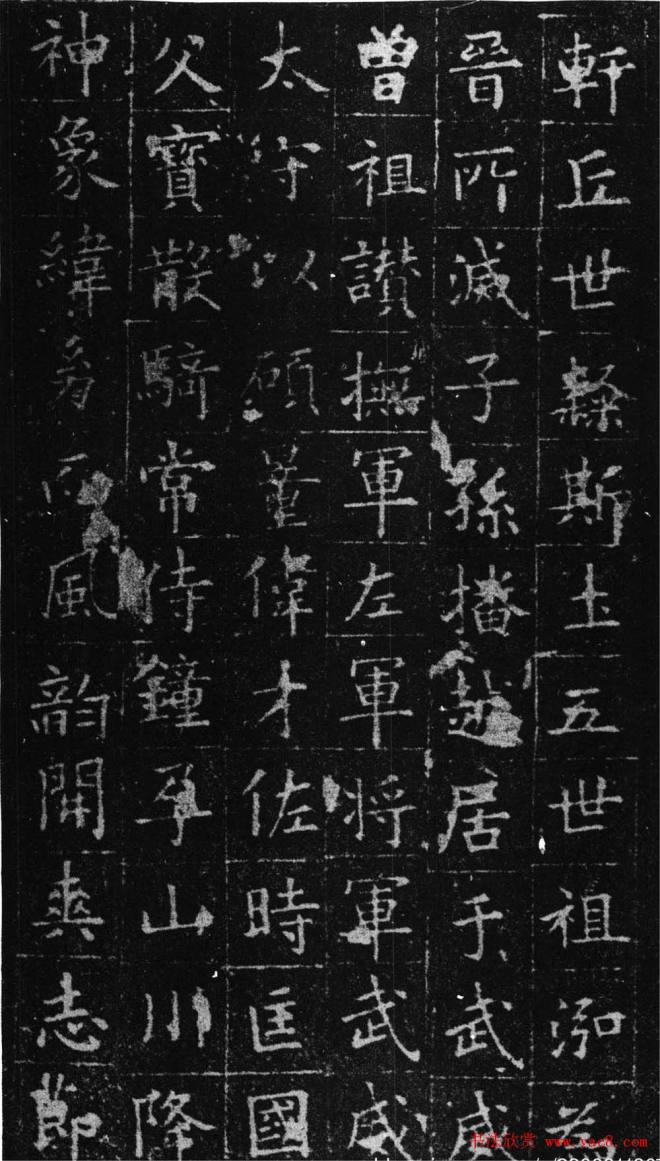 軒丘世隸斯土五世祖泓為
晉所滅子孫播越居于武威
曾祖讃撫軍左軍將軍武威
太守以碩量偉才佐時匡國
父寶散騎常侍鐘孕山川降
神象緯 風韵開爽志節
书法欣赏 www.yac8.com